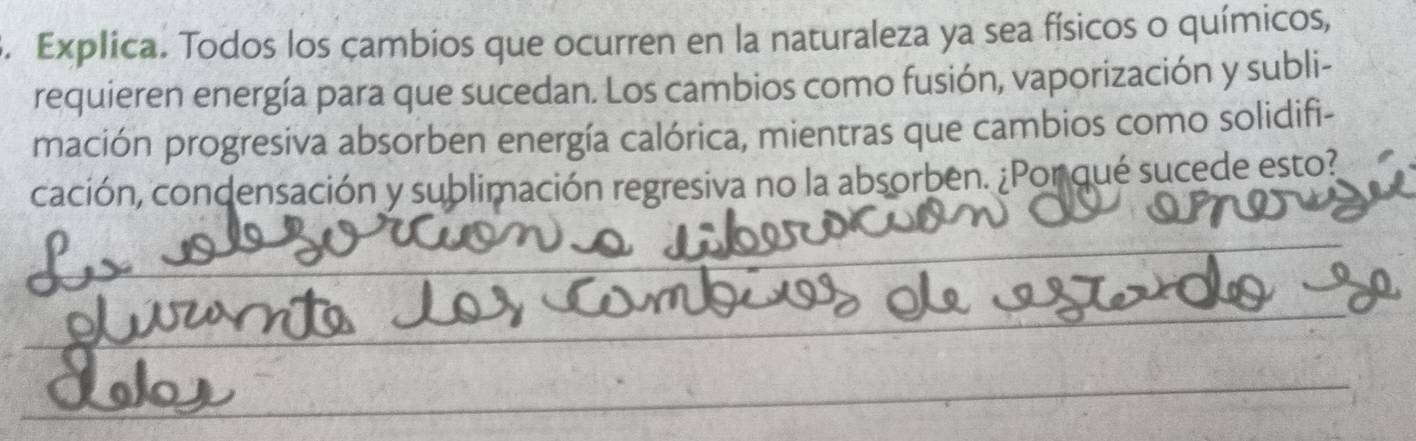 3. Explica. Todos los cambios que ocurren en la naturaleza ya sea físicos o químicos,
requieren energía para que sucedan. Los cambios como fusión, vaporización y subli-
mación progresiva absorben energía calórica, mientras que cambios como solidifi-
cación, condensación y sublimación regresiva no la absorben. ¿Por qué sucede esto?
La absorción o liberación de energía
durante los cambios de estado se
debe